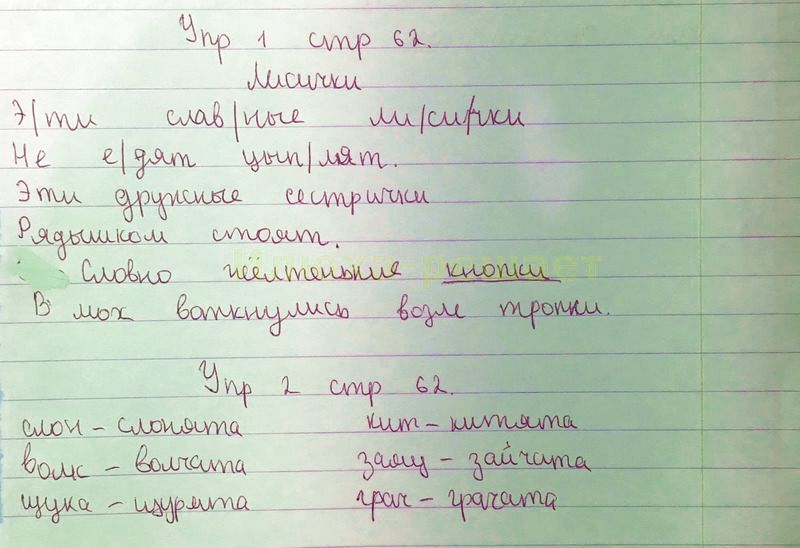 Упр 1 стр 62.
Лисички
Э/ти слав/ные ли/си/чки
Не е/дят цып/лят.
Эти дружные сестрички
Рядышком стоят.
Словно жёлтенькие кнопки
В мох воткнулись возле тропки.
Упр 2 стр 62.
слон – слонята кит – китята
волк – волчата заяц – зайчата
щука – щурята грач – грачата